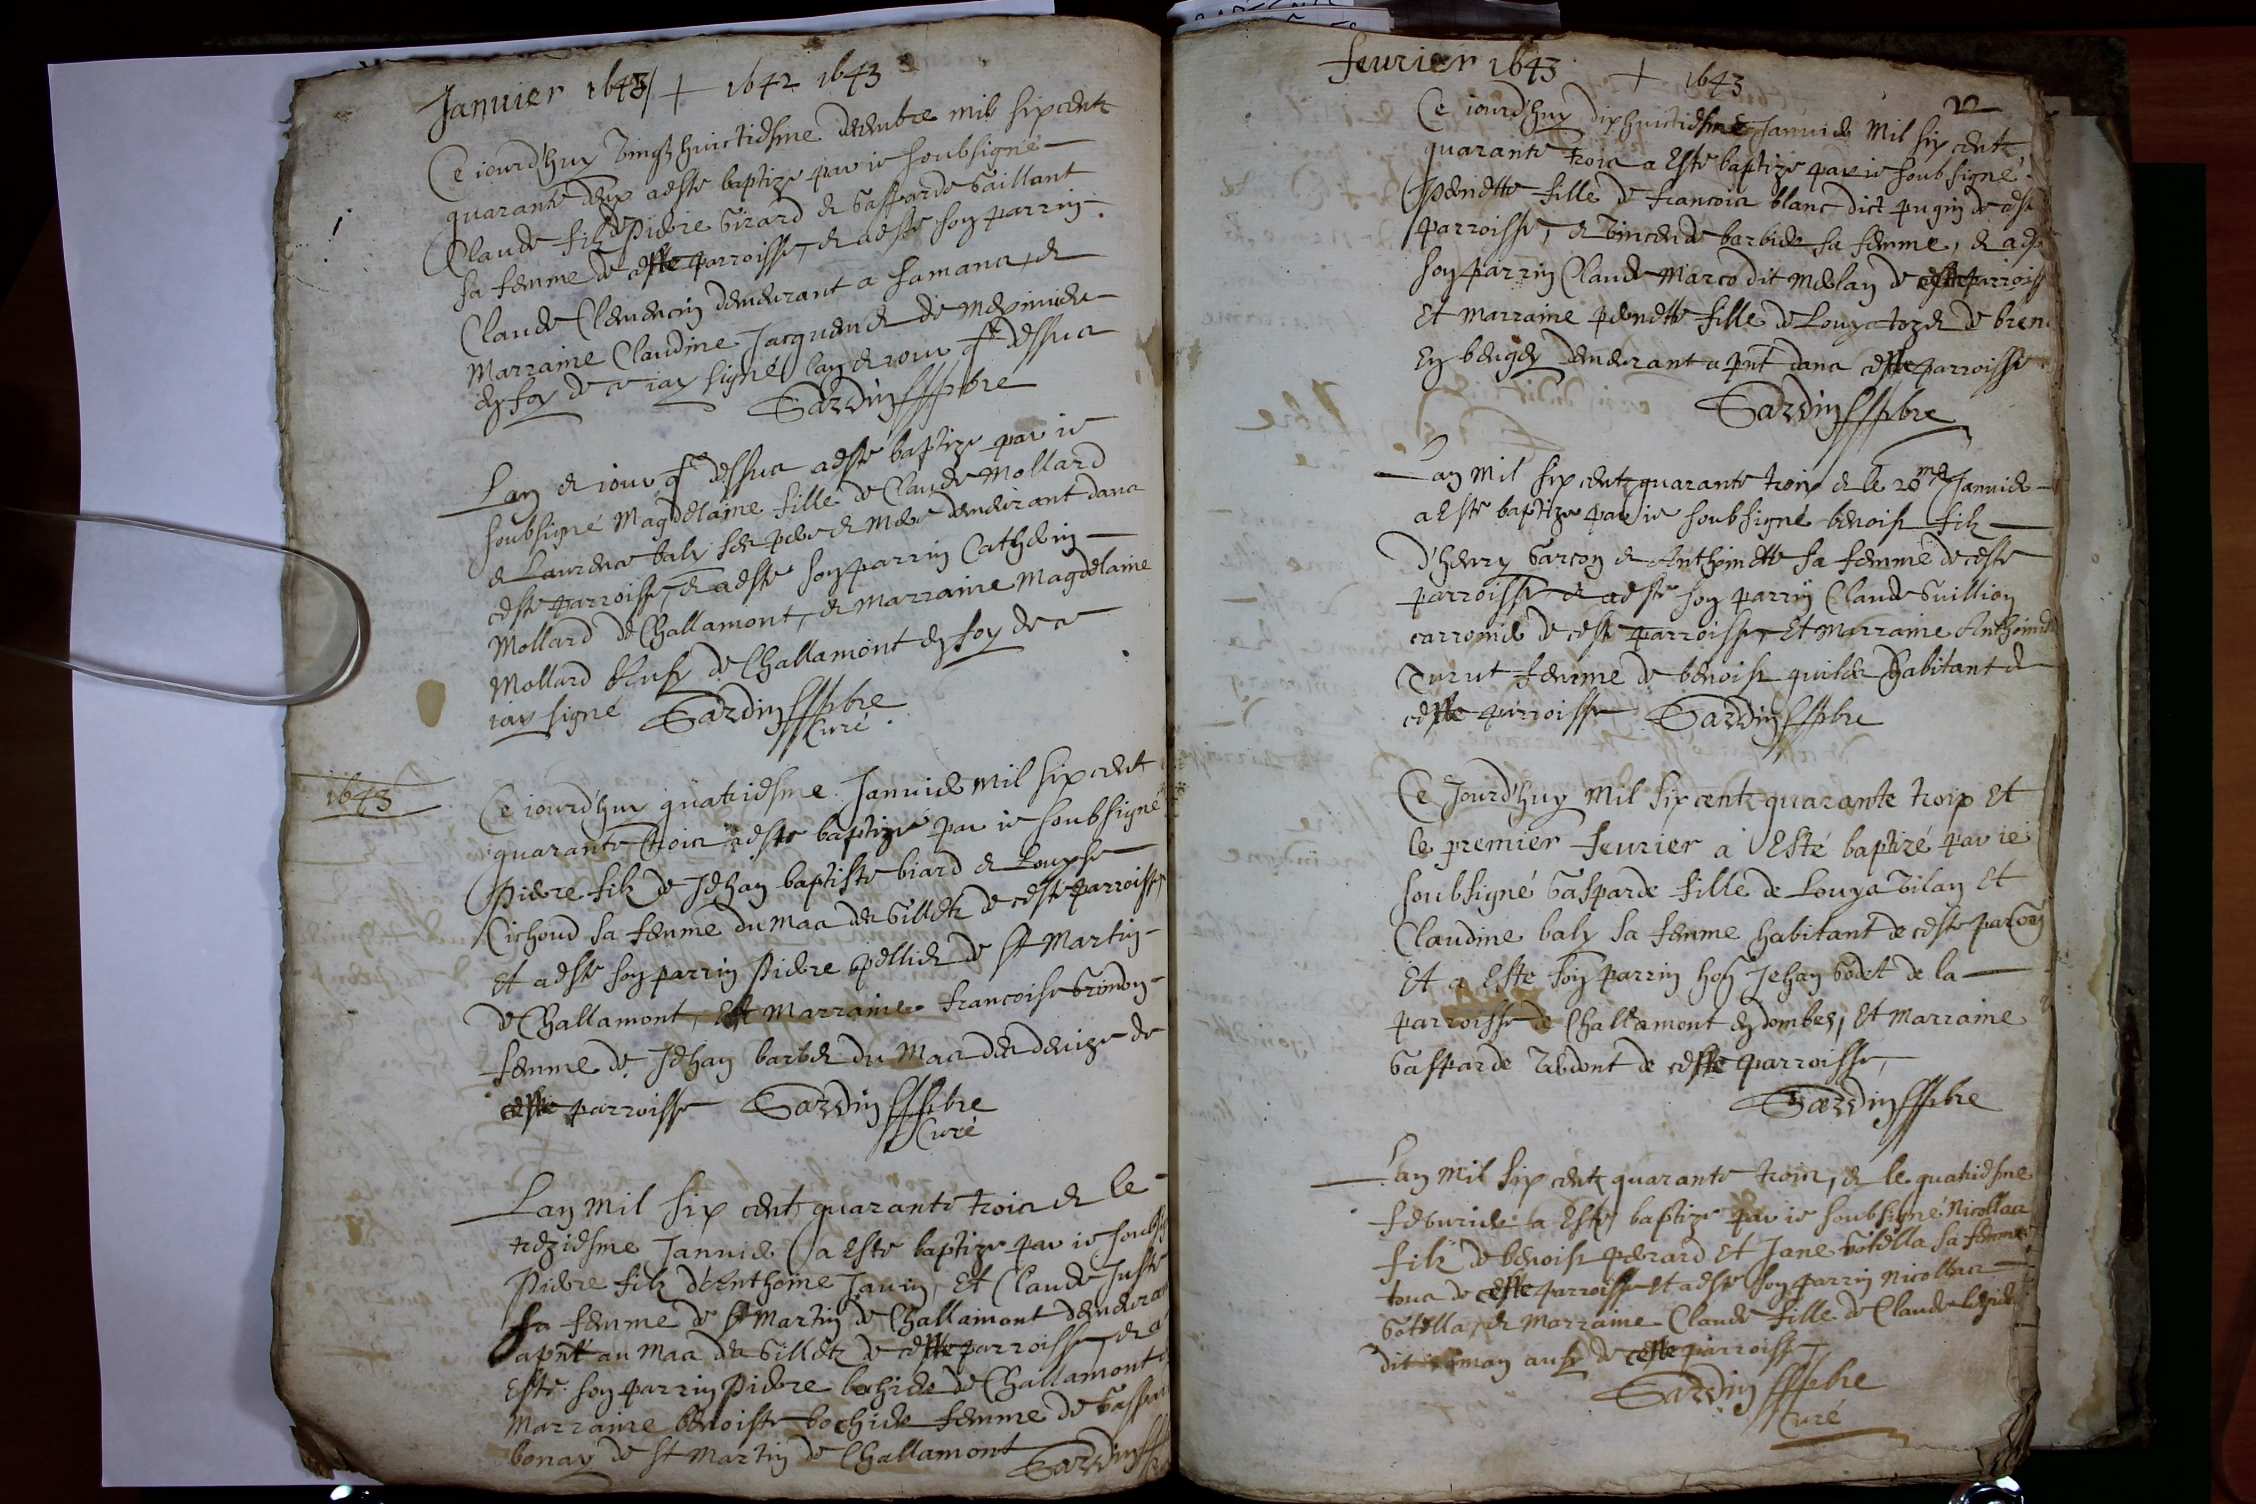 Januier 1643 + 1642 1643
Ce iourd'huy vingt huictiesme decembre mil six centz
quarante deux a este baptize par ie soubsigné
Claude filz de Pierre Girard et Gasparde Gaillant
sa femme de ceste parroisse, et a este son parrin
Claude Clemencin demeurant a Samans, et
Marraine Claudine Jacquemet de meximieu
en foy de ce iay signé lan et iour q dessus
Sardin pbre
Lan et iour q dessus a este baptize par ie
soubsigné Magdelaine fille de Claude Mollard
et Laurence baly ses pere et Mere demeurant dans
ceste parroisse, et a este son parrin Catherin
Mollard de Challamont, et marraine Magdelaine
Mollard aussy de Challamont en foy de ce
iay signé Sardin pbre
Curé
1643
Ce iourd'huy quatriesme Januier mil six cent
quarante trois a este baptize par ie soubsigné
Pierre filz de Jehan baptiste biard et Louyse
Cichoud sa femme du Mas des Gilletz de ceste parroisse,
Et a este son parrin Pierre pellier de St Martin
de Challamont, Et Marraine francoise Grondon
femme de Jehan barbet du Mas des denize de
ceste parroisse Sardin pbre
Curé
Lan mil six centz quarante trois et le
treziesme Januier a Este baptize par ie soubsi
Pierre filz d'Anthoine Jauin, Et Claude Juste
sa femme de St Martin de Challamont demeuran
apnt au Mas des Gilletz de ceste parroisse, et a
Esté son parrin Pierre bochier de Challamont
Marraine benoiste bochier femme de Gaspar
bonay de St Martin de Challamont Sardin
feurier 1643 + 1643
Ce iourd'huy dixhuictiesme Januier Mil six centz
quarante trois a Este baptize par ie soubsigné
Pernette fille de francois blanc dict pugin de cest
parroisse, et Vincende barbier sa femme, et a est
son parrin Claude Marco dit Merlan de ceste parroiss
Et marraine pernette fille de Louys tozet de bren
En beugey demeurant apnt dans ceste parroisse
Sardin pbre
Lan Mil six centz quarante trois et le 28me Januier
a Este baptize par ie soubsigné benoist filz
d'henry Garcon et Anthoinette sa femme de ceste
parroisse et a este son parrin Claude Guillion
carronier de ceste parroisse, Et Marraine Anthoinette
Turut femme de benoist quiblet habitant de
ceste parroisse Sardin pbre
Ce Jourd'huy Mil six centz quarante trois Et
le premier feurier a Esté baptizé par ie
soubsigné Gasparde fille de Louys Vilan Et
Claudine baly sa femme habitant de ceste parroi
Et a Este son parrin hon Jehan Godet de la
parroisse de Challamont en dombes, Et Marraine
Gasparde de ceste parroisse,
Sardin pbre
Lan mil six centz quarante trois, et le quatriesme
feburier a Este baptize par ie soubsigné Nicollas
filz de benoist perard Et Jane Gotella sa femme
tous de ceste parroisse Et a este son parrin Nicollas
Gotella, et Marraine Claude fille de Claude
dit aussy de ceste parroisse
Sardin pbre
Curé